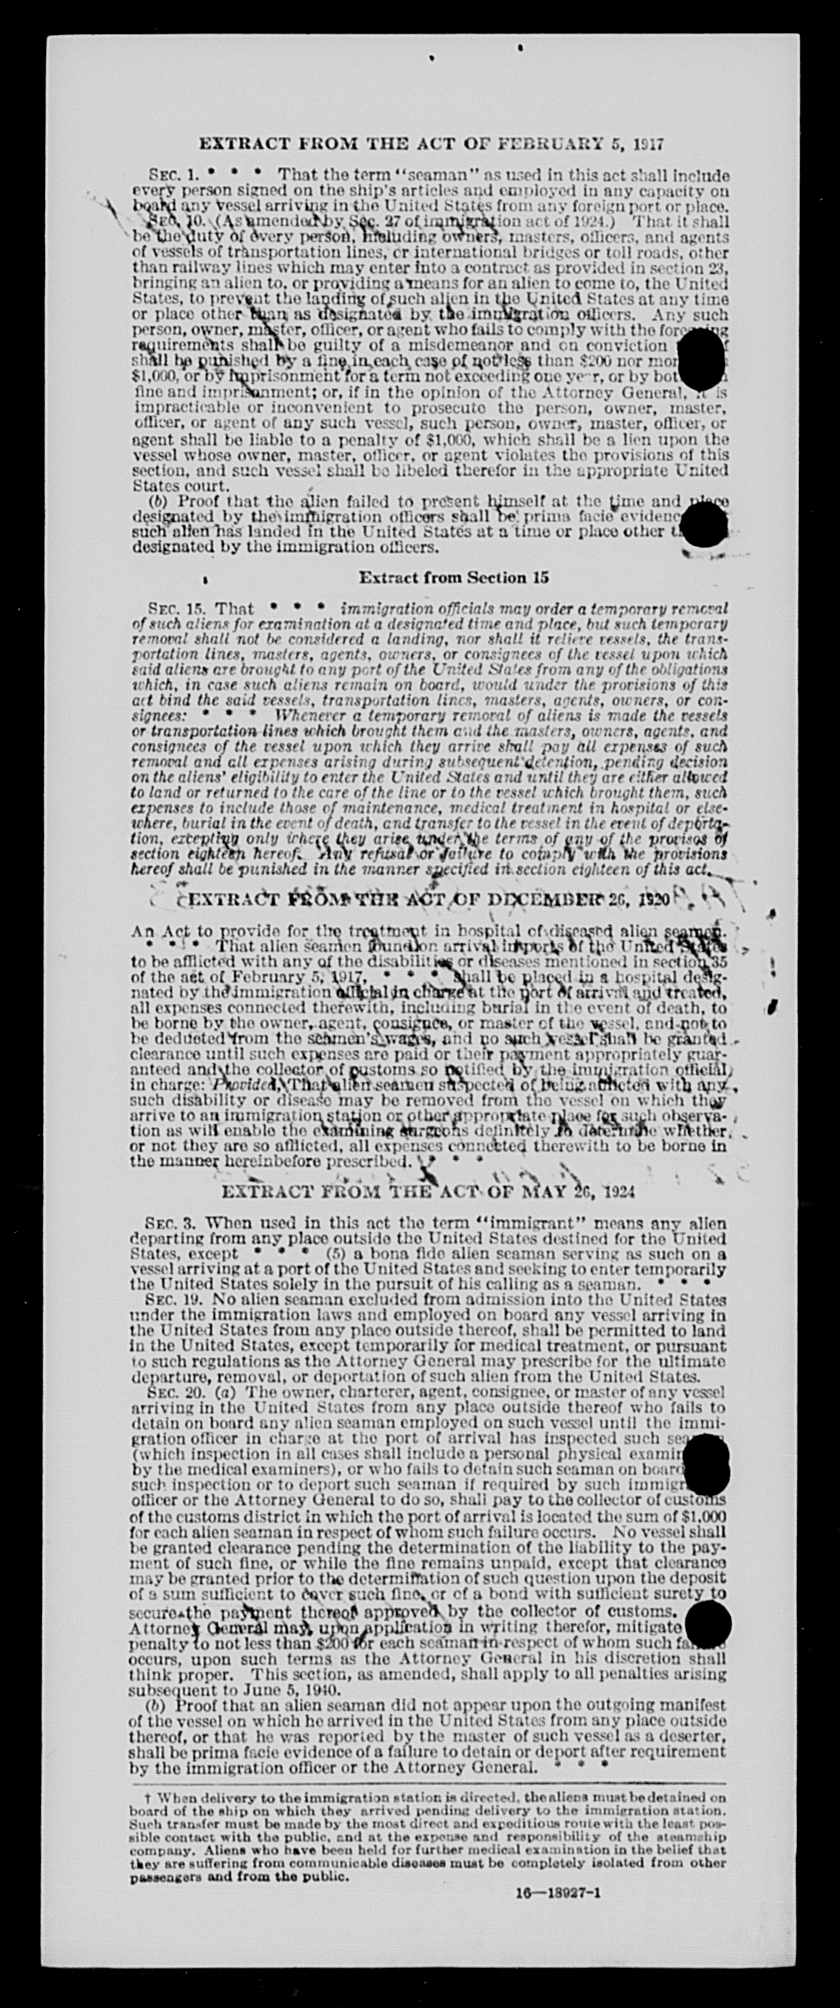 EXTRACT FROM THE ACT OF FEBRUARY 5, 1917
SEC. 1. * * * That the term "seaman" as used in this act shall include
every person signed on the ship's articles and employed in any capacity on
board any vessel arriving in the United States from any foreign port or place.
SEC. 10. (As amended by Sec. 27 of immigration act of 1924.) That it shall
be the duty of every person, including owners, masters, officers, and agents
of vessels of transportation lines, or international bridges or toll roads, other
than railway lines which may enter into a contract as provided in section 23,
bringing an alien to, or providing a means for an alien to come to, the United
States, to prevent the landing of such alien in the United States at any time
or place other than as designated by the immigration officers. Any such
person, owner, master, officer, or agent who fails to comply with the foregoing
requirements shall be guilty of a misdemeanor and on conviction
shall be punished by a fine in each case of not less than $200 nor mor
$1,000, or by imprisonment for a term not exceeding one year, or by bot
fine and imprisonment; or, if in the opinion of the Attorney General, it is
impracticable or inconvenient to prosecute the person, owner, master,
officer, or agent of any such vessel, such person, owner, master, officer, or
agent shall be liable to a penalty of $1,000, which shall be a lien upon the
vessel whose owner, master, officer, or agent violates the provisions of this
section, and such vessel shall be libeled therefor in the appropriate United
States court.
(b) Proof that the alien failed to present himself at the time and place
designated by the immigration officers shall be prima facie evidenc
such alien has landed in the United States at a time or place other t
designated by the immigration officers.
Extract from Section 15
SEC. 15. That * * * immigration officials may order a temporary removal
of such aliens for examination at a designated time and place, but such temporary
removal shall not be considered a landing, nor shall it relieve vessels, the trans-
portation lines, masters, agents, owners, or consignees of the vessel upon which
said aliens are brought to any port of the United States from any of the obligations
which, in case such aliens remain on board, would under the provisions of this
act bind the said vessels, transportation lines, masters, agents, owners, or con-
signees: * * * Whenever a temporary removal of aliens is made the vessels
or transportation lines which brought them and the masters, owners, agents, and
consignees of the vessel upon which they arrive shall pay all expenses of such
removal and all expenses arising during subsequent detention, pending decision
on the aliens' eligibility to enter the United States and until they are either allowed
to land or returned to the care of the line or to the vessel which brought them, such
expenses to include those of maintenance, medical treatment in hospital or else-
where, burial in the event of death, and transfer to the vessel in the event of deporta-
tion, excepting only where they arise under the terms of any of the provisos of
section eighteen hereof. Any refusal or failure to comply with the provisions
hereof shall be punished in the manner specified in section eighteen of this act.
EXTRACT FROM THE ACT OF DECEMBER 26, 1920
An Act to provide for the treatment in hospital of diseased alien seamen.
* * * That alien seamen found on arrival in ports of the United States
to be afflicted with any of the disabilities or diseases mentioned in section 35
of the act of February 5, 1917, * * * shall be placed in a hospital desig-
nated by the immigration official in charge at the port of arrival and treated,
all expenses connected therewith, including burial in the event of death, to
be borne by the owner, agent, consignee, or master of the vessel, and not to
be deducted from the seamen's wages, and no such vessel shall be granted
clearance until such expenses are paid or their payment appropriately guar-
anteed and the collector of customs so notified by the immigration official
in charge: Provided, That alien seamen suspected of being afflicted with any
such disability or disease may be removed from the vessel on which they
arrive to an immigration station or other appropriate place for such observa-
tion as will enable the examining surgeons definitely to determine whether
or not they are so afflicted, all expenses connected therewith to be borne in
the manner hereinbefore prescribed. * * *
EXTRACT FROM THE ACT OF MAY 26, 1924
SEC. 3. When used in this act the term "immigrant" means any alien
departing from any place outside the United States destined for the United
States, except * * * (5) a bona fide alien seaman serving as such on a
vessel arriving at a port of the United States and seeking to enter temporarily
the United States solely in the pursuit of his calling as a seaman. * * *
SEC. 19. No alien seaman excluded from admission into the United States
under the immigration laws and employed on board any vessel arriving in
the United States from any place outside thereof, shall be permitted to land
in the United States, except temporarily for medical treatment, or pursuant
to such regulations as the Attorney General may prescribe for the ultimate
departure, removal, or deportation of such alien from the United States.
SEC. 20. (a) The owner, charterer, agent, consignee, or master of any vessel
arriving in the United States from any place outside thereof who fails to
detain on board any alien seaman employed on such vessel until the immi-
gration officer in charge at the port of arrival has inspected such sea
(which inspection in all cases shall include a personal physical examin
by the medical examiners), or who fails to detain such seaman on board
such inspection or to deport such seaman if required by such immigr
officer or the Attorney General to do so, shall pay to the collector of customs
of the customs district in which the port of arrival is located the sum of $1,000
for each alien seaman in respect of whom such failure occurs. No vessel shall
be granted clearance pending the determination of the liability to the pay-
ment of such fine, or while the fine remains unpaid, except that clearance
may be granted prior to the determination of such question upon the deposit
of a sum sufficient to cover such fine, or of a bond with sufficient surety to
secure the payment thereof approved by the collector of customs.
Attorney General may, upon application in writing therefor, mitigate
penalty to not less than $200 for each seaman in respect of whom such failure
occurs, upon such terms as the Attorney General in his discretion shall
think proper. This section, as amended, shall apply to all penalties arising
subsequent to June 5, 1940.
(b) Proof that an alien seaman did not appear upon the outgoing manifest
of the vessel on which he arrived in the United States from any place outside
thereof, or that he was reported by the master of such vessel as a deserter,
shall be prima facie evidence of a failure to detain or deport after requirement
by the immigration officer or the Attorney General. * * *
† When delivery to the immigration station is directed, the aliens must be detained on
board of the ship on which they arrived pending delivery to the immigration station.
Such transfer must be made by the most direct and expeditious route with the least pos-
sible contact with the public, and at the expense and responsibility of the steamship
company. Aliens who have been held for further medical examination in the belief that
they are suffering from communicable diseases must be completely isolated from other
passengers and from the public.
16—18927-1